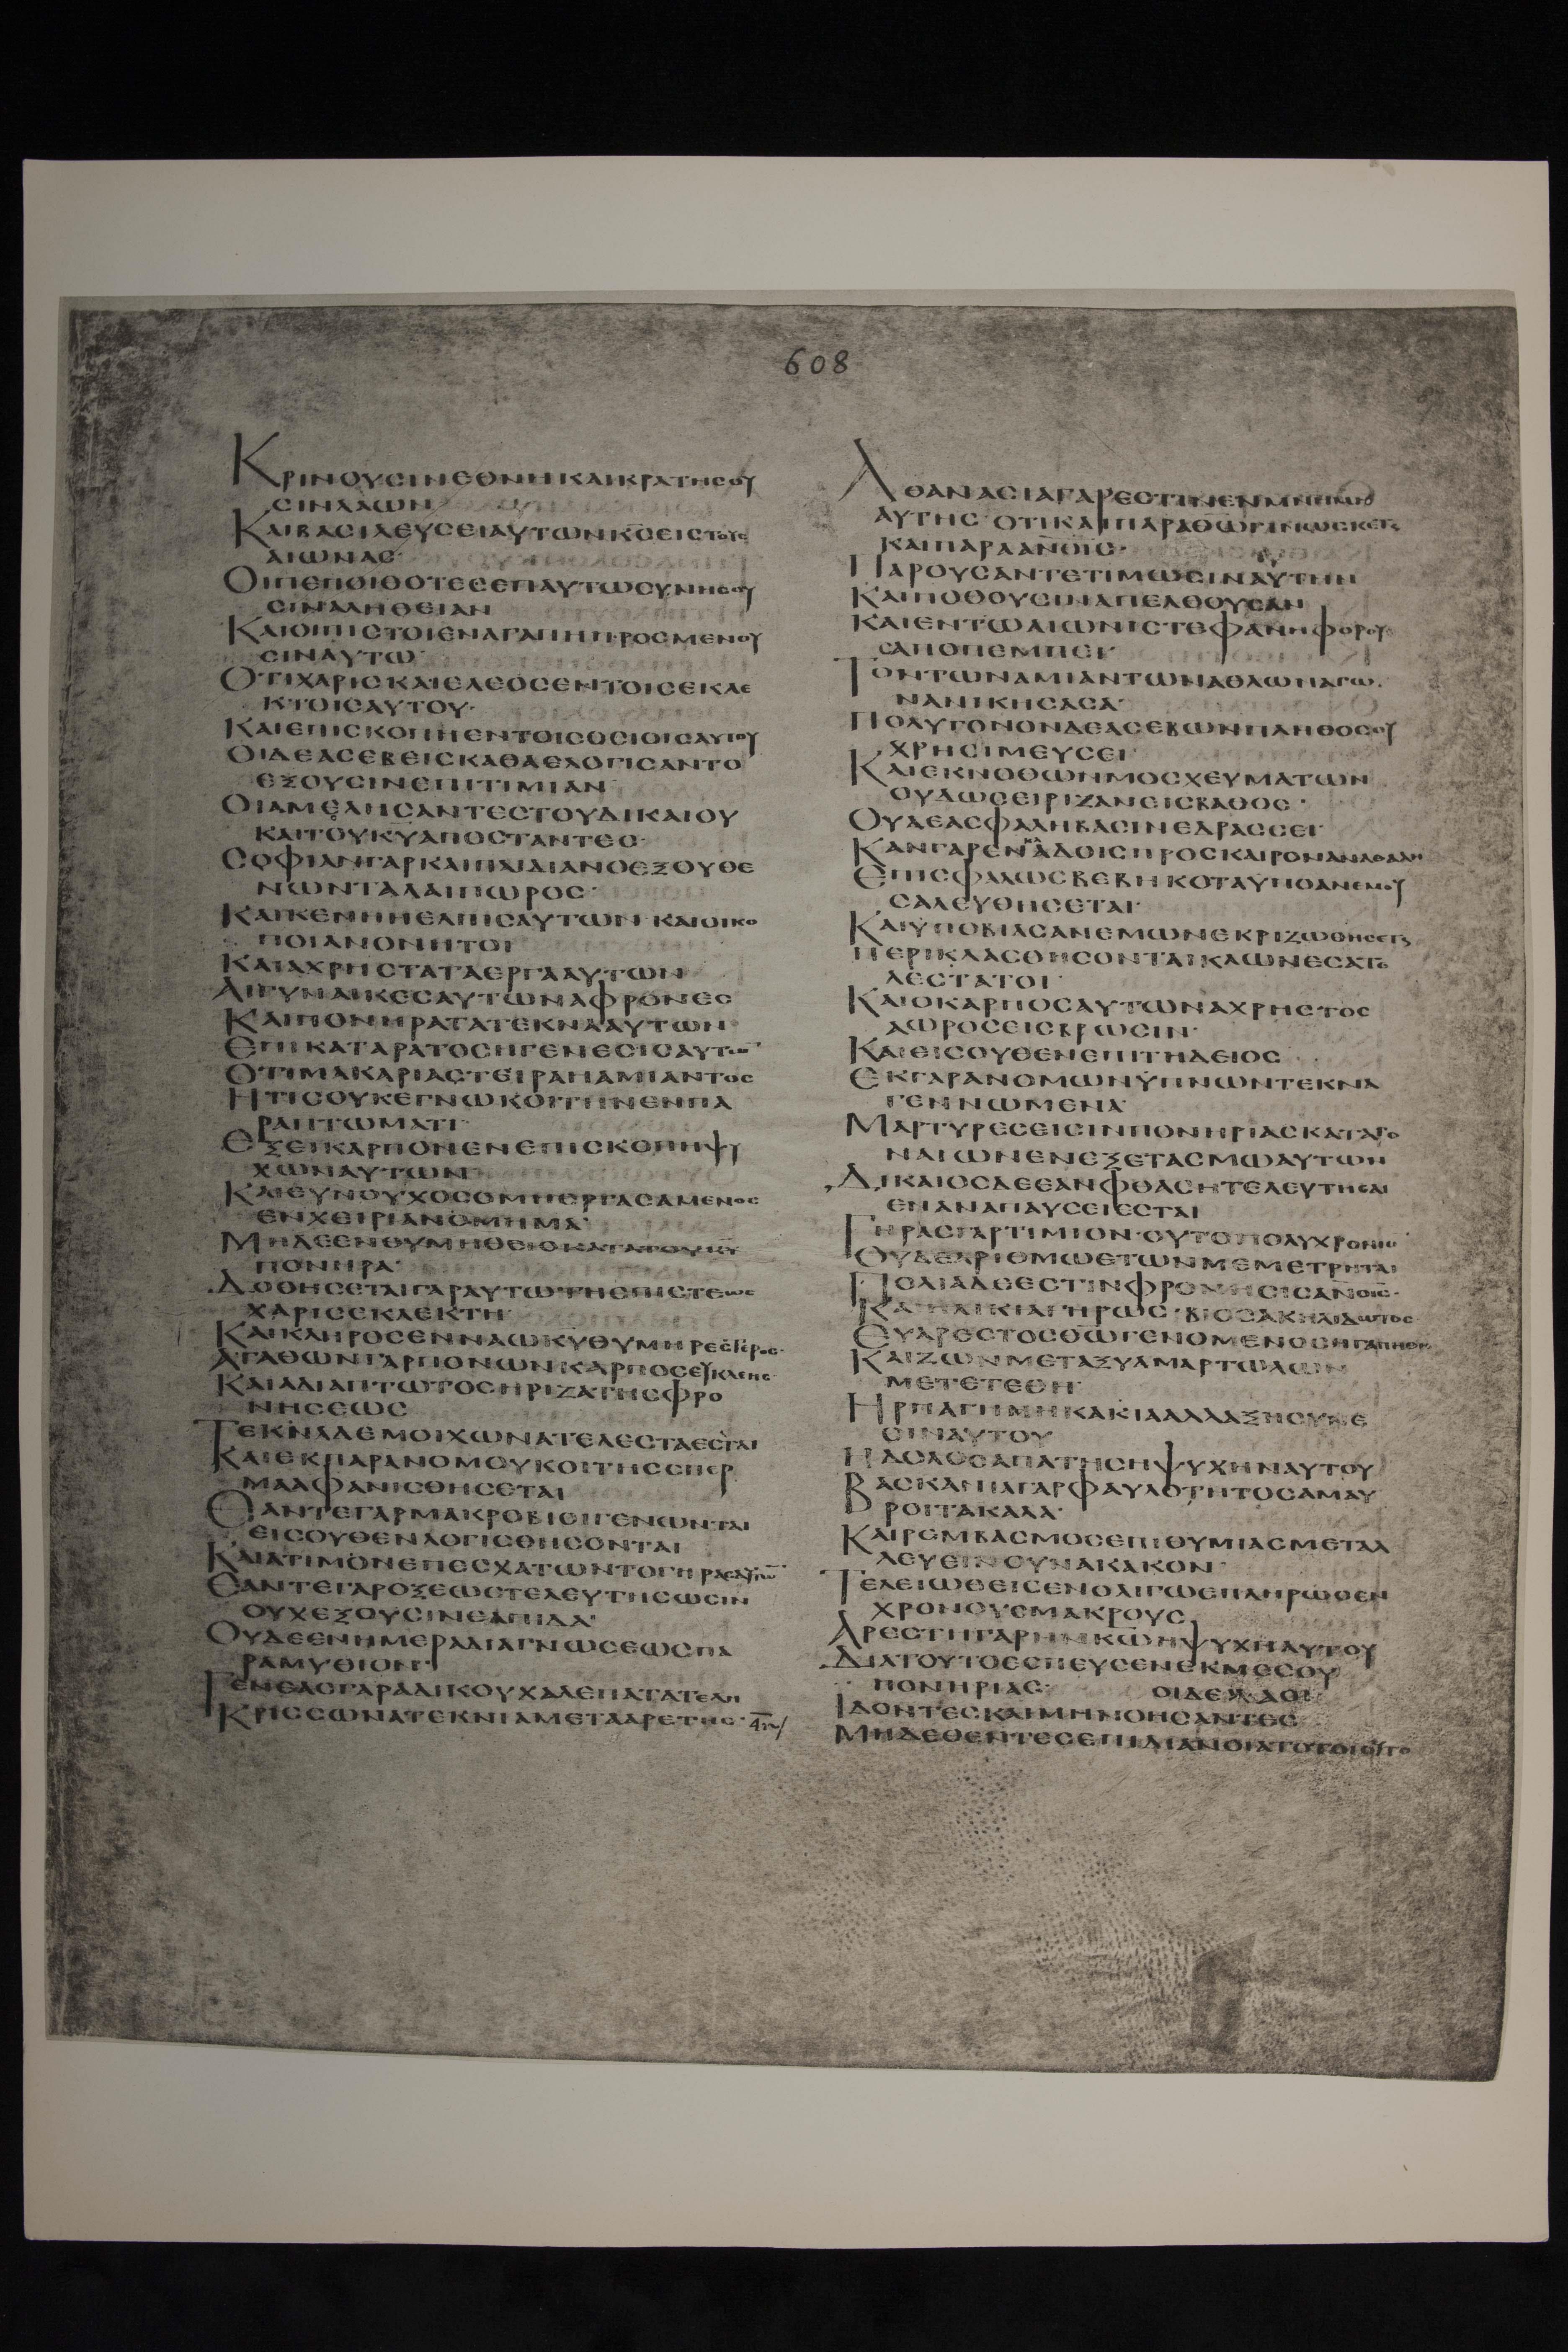 608
ΚΡΙΝΟΥϹΙΝΕΘΝΗΚΑΙΚΡΑΤΗϹΟΥ
ϹΙΝΛΑΩΝ
ΚΑΙΒΑϹΙΛΕΥϹΕΙΑΥΤΩΝΚ̅Ϲ̅ΕΙϹΤΟΥϹ
ΑΙΩΝΑϹ·
ΟΙΠΕΠΟΙΘΟΤΕϹΕΠΑΥΤΩϹΥΝΗϹΟΥ
ϹΙΝΑΛΗΘΕΙΑΝ
ΚΑΙΟΙΠΙϹΤΟΙΕΝΑΓΑΠΗΠΡΟϹΜΕΝΟΥ
ϹΙΝΑΥΤΩ·
ΟΤΙΧΑΡΙϹΚΑΙΕΛΕΟϹΕΝΤΟΙϹΕΚΛΕ
ΚΤΟΙϹΑΥΤΟΥ·
ΚΑΙΕΠΙϹΚΟΠΗΕΝΤΟΙϹΟϹΙΟΙϹΑΥΤΟΥ
ΟΙΔΕΑϹΕΒΕΙϹΚΑΘΑΕΛΟΓΙϹΑΝΤΟ
ΕΞΟΥϹΙΝΕΠΙΤΙΜΙΑΝ
ΟΙΑΜΕΛΗϹΑΝΤΕϹΤΟΥΔΙΚΑΙΟΥ
ΚΑΙΤΟΥΚ̅Υ̅ΑΠΟϹΤΑΝΤΕϹ·
ϹΟΦΙΑΝΓΑΡΚΑΙΠΑΙΔΙΑΝΟΕΞΟΥΘΕ
ΝΩΝΤΑΛΑΙΠΩΡΟϹ·
ΚΑΙΚΕΝΗΗΕΛΠΙϹΑΥΤΩΝ·ΚΑΙΟΙΚΟ
ΠΟΙΑΝΟΝΗΤΟΙ
ΚΑΙΑΧΡΗϹΤΑΤΑΕΡΓΑΑΥΤΩΝ
ΑΙΓΥΝΑΙΚΕϹΑΥΤΩΝΑΦΡΟΝΕϹ
ΚΑΙΠΟΝΗΡΑΤΑΤΕΚΝΑΑΥΤΩΝ
ΕΠΙΚΑΤΑΡΑΤΟϹΗΓΕΝΕϹΙϹΑΥΤΩΝ
ΟΤΙΜΑΚΑΡΙΑϹΤΕΙΡΑΗΑΜΙΑΝΤΟϹ
ΗΤΙϹΟΥΚΕΓΝΩΚΟΙΤΗΝΕΝΠΑ
ΡΑΠΤΩΜΑΤΙ·
ΕΞΕΙΚΑΡΠΟΝΕΝΕΠΙϹΚΟΠΗΨΥ
ΧΩΝΑΥΤΩΝ
ΚΑΙΕΥΝΟΥΧΟϹΟΜΗΕΡΓΑϹΑΜΕΝΟϹ
ΕΝΧΕΙΡΙΑΝΟΜΗΜΑ·
ΜΗΔΕΕΝΘΥΜΗΘΕΙϹΚΑΤΑΤΟΥΚ̅Υ̅
ΠΟΝΗΡΑ·
ΔΟΘΗϹΕΤΑΙΓΑΡΑΥΤΩΤΗϹΠΙϹΤΕΩϹ
ΧΑΡΙϹΕΚΛΕΚΤΗ·
ΚΑΙΚΛΗΡΟϹΕΝΝΑΩΚ̅Υ̅ΘΥΜΗΡΕϹΤΕΡΟϹ·
ΑΓΑΘΩΝΓΑΡΠΟΝΩΝΚΑΡΠΟϹΕΥΚΛΕΗϹ
ΚΑΙΑΔΙΑΠΤΩΤΟϹΗΡΙΖΑΤΗϹΦΡΟ
ΝΗϹΕΩϹ
ΤΕΚΝΑΔΕΜΟΙΧΩΝΑΤΕΛΕϹΤΑΕϹΤΑΙ
ΚΑΙΕΚΠΑΡΑΝΟΜΟΥΚΟΙΤΗϹϹΠΕΡ
ΜΑΑΦΑΝΙϹΘΗϹΕΤΑΙ
ΕΑΝΤΕΓΑΡΜΑΚΡΟΒΙΟΙΓΕΝΩΝΤΑΙ
ΕΙϹΟΥΘΕΝΛΟΓΙϹΘΗϹΟΝΤΑΙ
ΚΑΙΑΤΙΜΟΝΕΠΕϹΧΑΤΩΝΤΟΓΗΡΑϹΑΥΤΩ̅
ΕΑΝΤΕΓΑΡΟΞΕΩϹΤΕΛΕΥΤΗϹΩϹΙΝ
ΟΥΧΕΞΟΥϹΙΝΕΛΠΙΔΑ·
ΟΥΔΕΕΝΗΜΕΡΑΔΙΑΓΝΩϹΕΩϹΠΑ
ΡΑΜΥΘΙΟΝ·
ΓΕΝΕΑϹΓΑΡΑΔΙΚΟΥΧΑΛΕΠΑΤΑΤΕΛΗ
ΚΡΙϹϹΩΝΑΤΕΚΝΙΑΜΕΤΑΑΡΕΤΗϹ·
ΑΘΑΝΑϹΙΑΓΑΡΕϹΤΙΝΕΝΜΝΗΜΗ
ΑΥΤΗϹ·ΟΤΙΚΑΙΠΑΡΑΘΩΓΙΝΩϹΚΕΤΑΙ
ΚΑΙΠΑΡΑΑΝ̅ΟΙϹ·
ΠΑΡΟΥϹΑΝΤΕΤΙΜΩϹΙΝΑΥΤΗΝ
ΚΑΙΠΟΘΟΥϹΙΝΑΠΕΛΘΟΥϹΑΝ
ΚΑΙΕΝΤΩΑΙΩΝΙϹΤΕΦΑΝΗΦΟΡΟΥ
ϹΑΠΟΠΕΜΠΕΙ·
ΤΟΝΤΩΝΑΜΙΑΝΤΩΝΑΘΛΩΝΑΓΩ
ΝΑΝΙΚΗϹΑϹΑ·
ΠΟΛΥΓΟΝΟΝΔΕΑϹΕΒΩΝΠΛΗΘΟϹΟΥ
ΧΡΗϹΙΜΕΥϹΕΙ·
ΚΑΙΕΚΝΟΘΩΝΗΜΟϹΧΕΥΜΑΤΩΝ
ΟΥΔΩϹΕΙΡΙΖΑΝΕΙϹΒΑΘΟϹ·
ΟΥΔΕΑϹΦΑΛΗΒΑϹΙΝΕΔΡΑϹϹΕΙ·
ΚΑΝΓΑΡΕΝΚΛΑΔΟΙϹΠΡΟϹΚΑΙΡΟΝΑΝΑΘΑΛΗ
ΕΠΙϹΦΑΛΩϹΒΕΒΗΚΟΤΑΥΠΟΑΝΕΜΟΥ
ϹΑΛΕΥΘΗϹΕΤΑΙ·
ΚΑΙΥΠΟΒΙΑϹΑΝΕΜΩΝΕΚΡΙΖΩΘΗϹΕΤΑΙ
ΠΕΡΙΚΛΑϹΘΗϹΟΝΤΑΙΚΛΩΝΕϹΑΤΕ
ΛΕϹΤΑΤΟΙ·
ΚΑΙΟΚΑΡΠΟϹΑΥΤΩΝΑΧΡΗϹΤΟϹ
ΑΩΡΟϹΕΙϹΒΡΩϹΙΝ·
ΚΑΙΕΙϹΟΥΘΕΝΕΠΙΤΗΔΕΙΟϹ
ΕΚΓΑΡΑΝΟΜΩΝΥΠΝΩΝΤΕΚΝΑ
ΓΕΝΝΩΜΕΝΑ·
ΜΑΡΤΥΡΕϹΕΙϹΙΝΠΟΝΗΡΙΑϹΚΑΤΑΓΟ
ΝΑΙΩΝΕΝΕΞΕΤΑϹΜΩΑΥΤΩΝ
ΔΙΚΑΙΟϹΔΕΕΑΝΦΘΑϹΗΤΕΛΕΥΤΗϹΑΙ
ΕΝΑΝΑΠΑΥϹΕΙΕϹΤΑΙ
ΓΗΡΑϹΓΑΡΤΙΜΙΟΝ·ΟΥΤΟΠΟΛΥΧΡΟΝΙΟ̅
ΟΥΔΕΑΡΙΘΜΩΕΤΩΝΜΕΜΕΤΡΗΤΑΙ
ΠΟΛΙΑΔΕΕϹΤΙΝΦΡΟΝΗϹΙϹΑΝ̅ΟΙϹ·
ΚΑΙΗΛΙΚΙΑΓΗΡΩϹ·ΒΙΟϹΑΚΗΛΙΔΩΤΟϹ
ΕΥΑΡΕϹΤΟϹΘ̅Ω̅ΓΕΝΟΜΕΝΟϹΗΓΑΠΗΘΗ
ΚΑΙΖΩΝΜΕΤΑΞΥΑΜΑΡΤΩΛΩΝ
ΜΕΤΕΤΕΘΗ·
ΗΡΠΑΓΗΜΗΚΑΚΙΑΑΛΛΑΞΗϹΥΝΕ
ϹΙΝΑΥΤΟΥ
ΗΔΟΛΟϹΑΠΑΤΗϹΗΨΥΧΗΝΑΥΤΟΥ
ΒΑϹΚΑΝΙΑΓΑΡΦΑΥΛΟΤΗΤΟϹΑΜΑΥ
ΡΟΙΤΑΚΑΛΑ·
ΚΑΙΡΕΜΒΑϹΜΟϹΕΠΙΘΥΜΙΑϹΜΕΤΑΛ
ΛΕΥΕΙΝΟΥΝΑΚΑΚΟΝ·
ΤΕΛΕΙΩΘΕΙϹΕΝΟΛΙΓΩΕΠΛΗΡΩϹΕΝ
ΧΡΟΝΟΥϹΜΑΚΡΟΥϹ
ΑΡΕϹΤΗΓΑΡΗΝΚ̅Ω̅ΗΨΥΧΗΑΥΤΟΥ
ΔΙΑΤΟΥΤΟΕϹΠΕΥϹΕΝΕΚΜΕϹΟΥ
ΠΟΝΗΡΙΑϹ· ΟΙΔΕΛΑΟΙ·
ΙΔΟΝΤΕϹΚΑΙΜΗΝΟΗϹΑΝΤΕϹ
ΜΗΔΕΘΕΝΤΕϹΕΠΙΔΙΑΝΟΙΑΤΟΤΟΙΟΥΤΟ